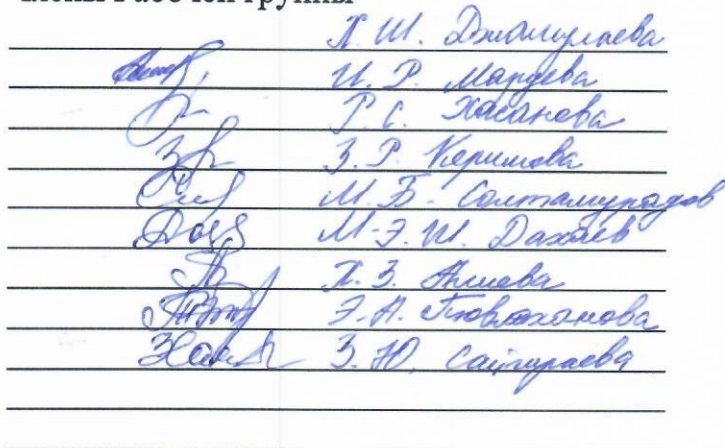 члены Рабочей группы
Х. Ш. Джамулаева
И. Р. Мардева
Р. С. Хасанова
З. Р. Керимова
М. Б. Солтамурадов
М-Э. Ш. Дахаев
Х. З. Алиева
Э. А.
З. Ю.